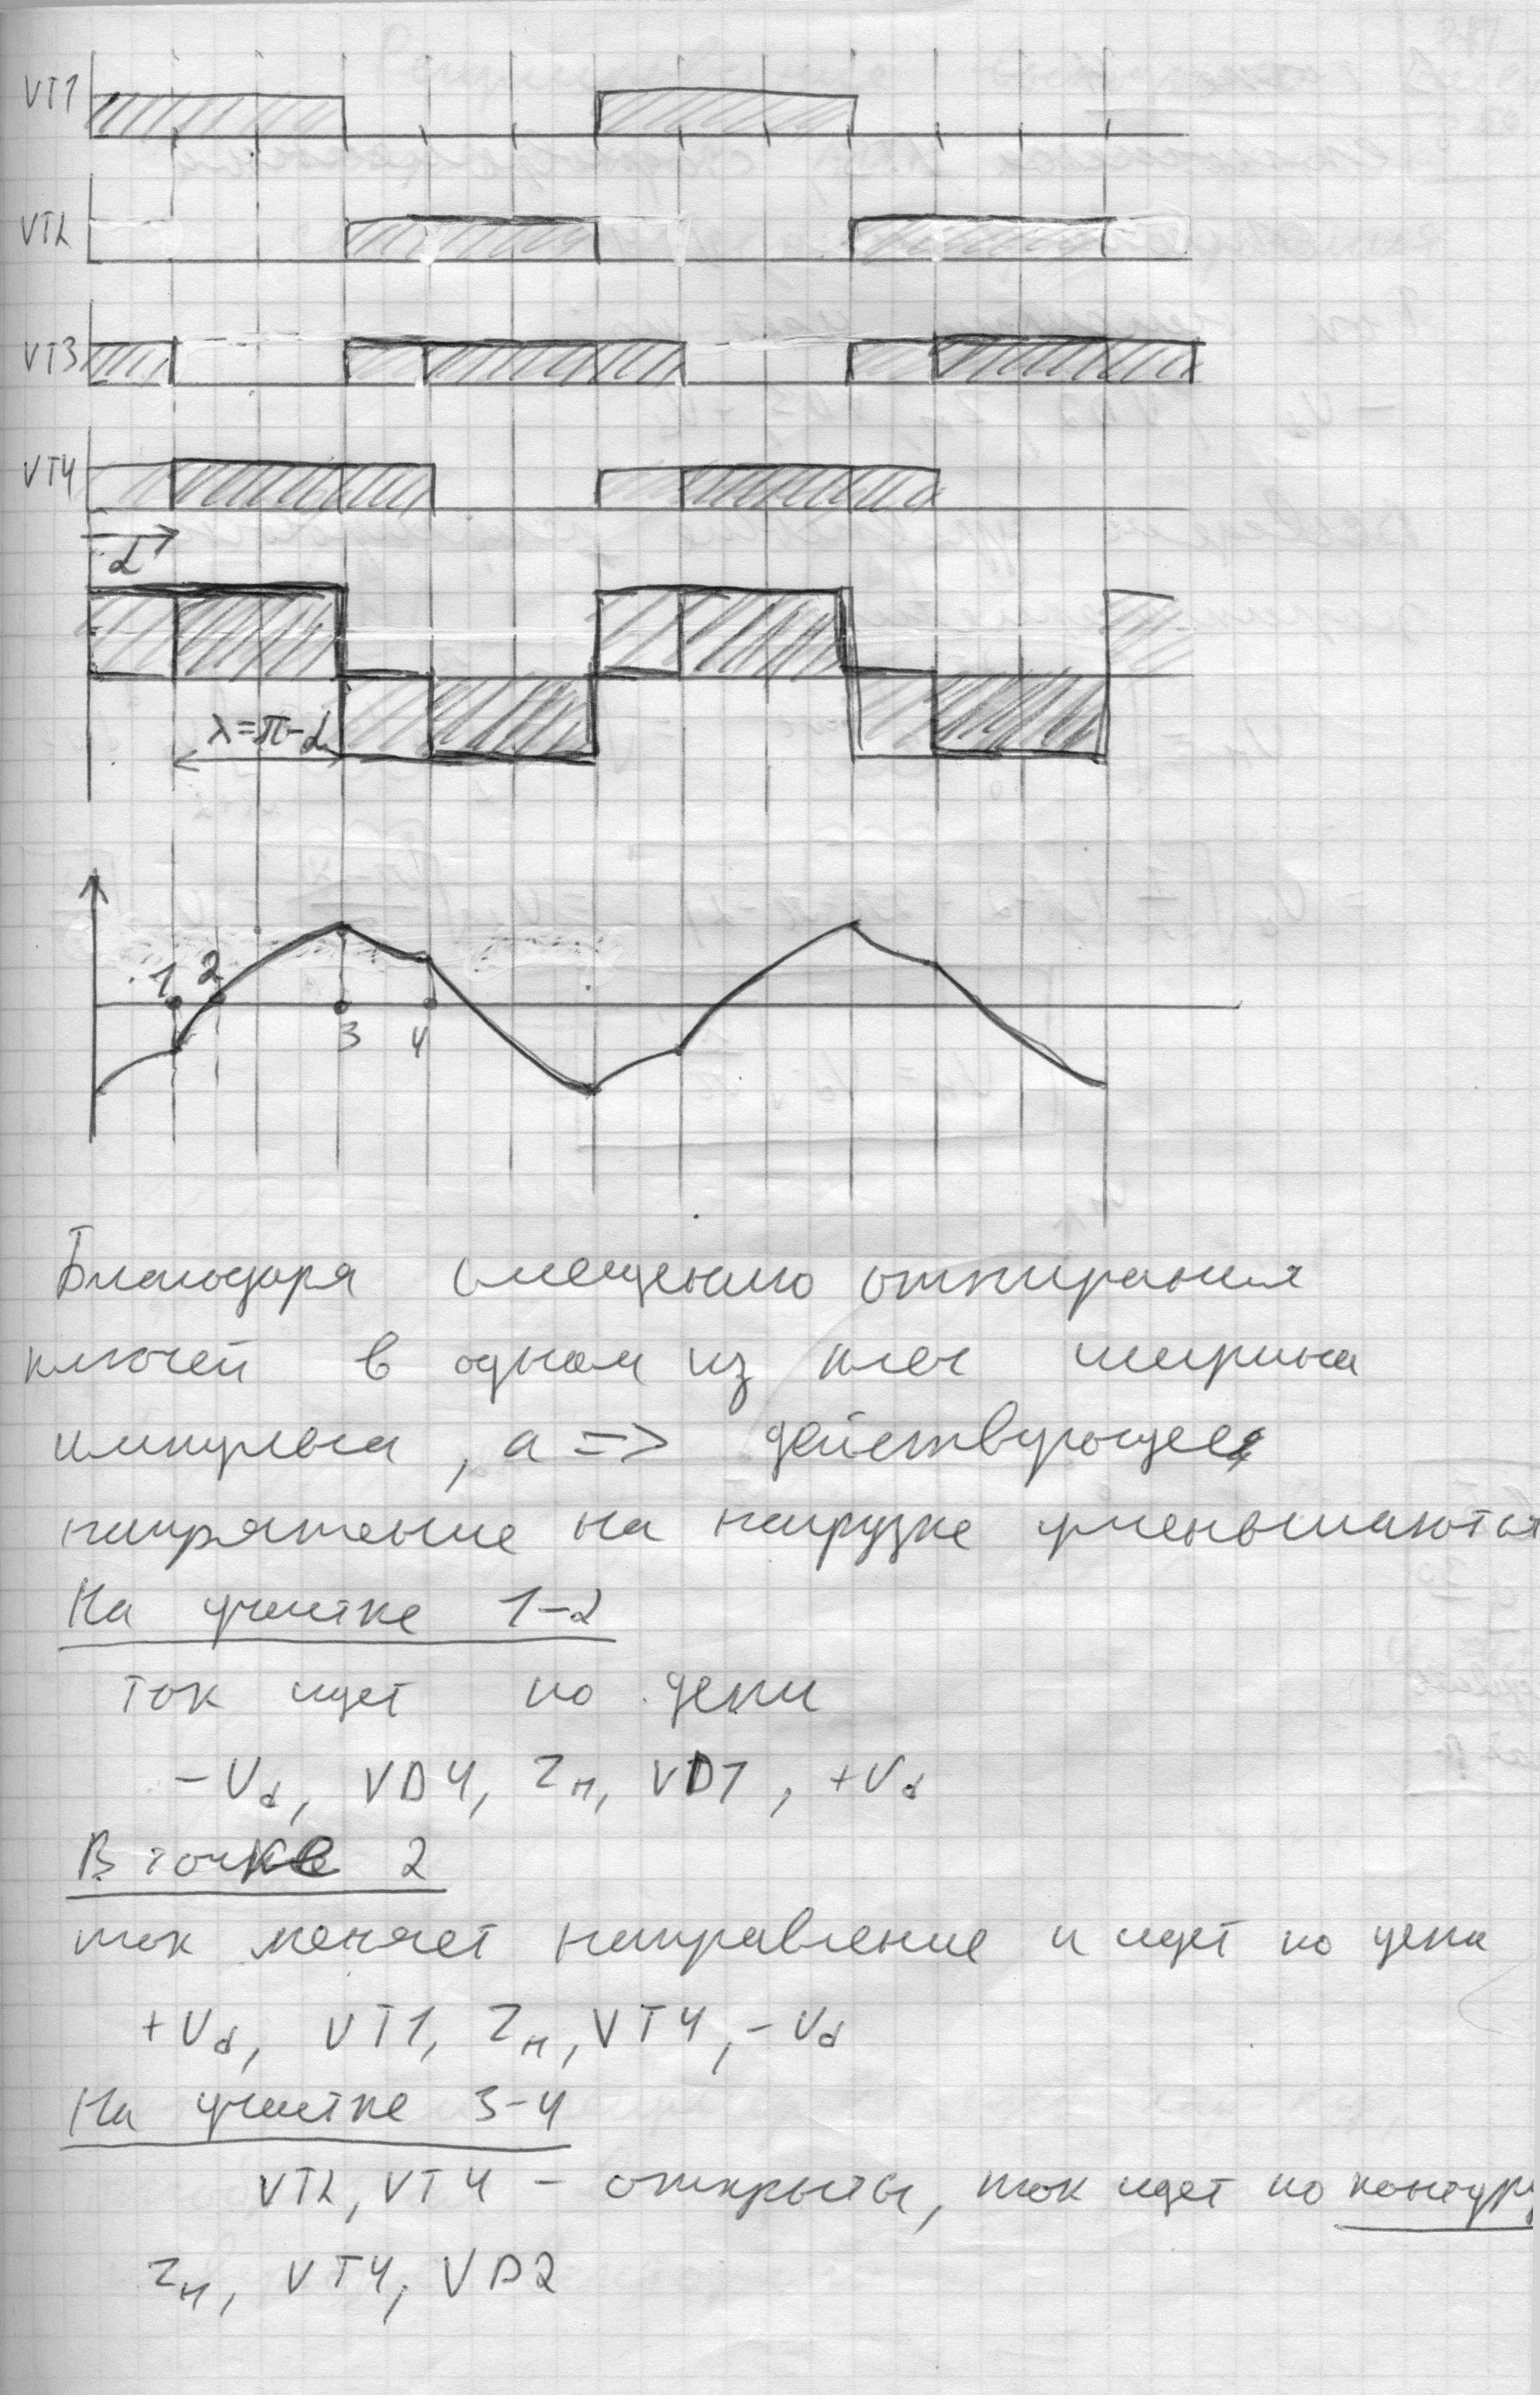 VT1
VT2
VT3
VT4
α
λ=π-α
1 2
3 4
Благодаря смещению отпирания
ключей в одном из плеч ширина
импульса, а => действующее
напряжение на нагрузке уменьшаются
На участке 1-2
ток идет по цепи
-Ud, VD4, Zн, VD1, +Ud
В точке 2
ток меняет направление и идет по цепи
+Ud, VT1, Zн, VT4, -Ud
На участке 3-4
VT2, VT4 - открыты, ток идет по контуру
Zн, VT4, VD2